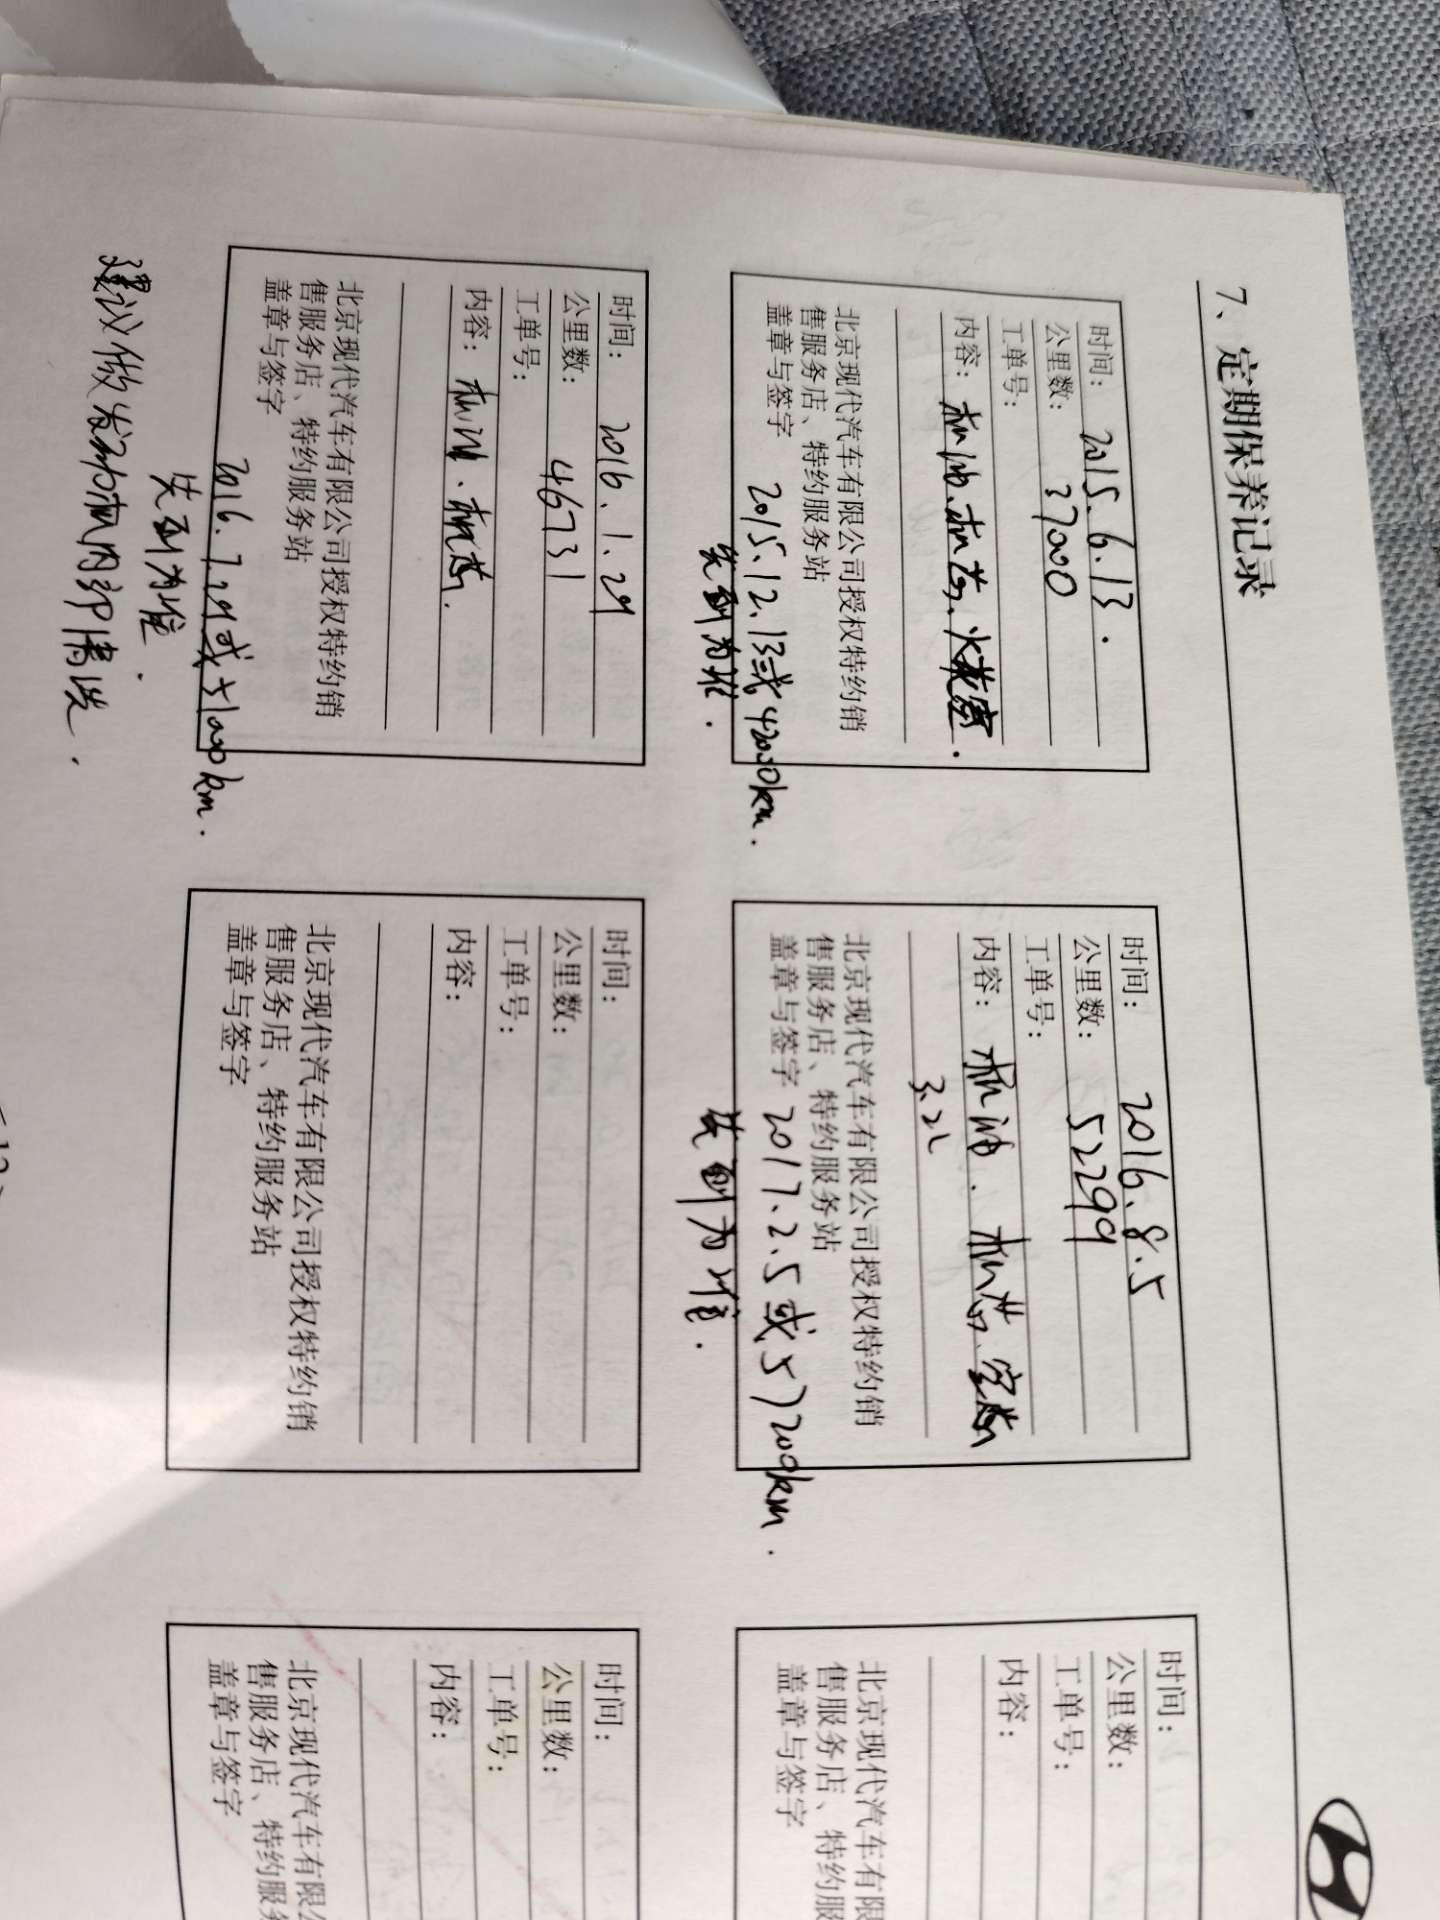 7、定期保养记录
时间： 2015.6.13.
公里数： 37000
工单号：
内容： 机油、机芯、火花塞.
北京现代汽车有限公司授权特约销
售服务店、特约服务站
盖章与签字
2015.12.13或42000km.
先到为准.
时间： 2016.8.5
公里数： 52299
工单号：
内容： 机油、机芯、空芯
3.2L
北京现代汽车有限公司授权特约销
售服务店、特约服务站
盖章与签字 2017.2.5或57200km.
先到为准.
时间：
公里数：
工单号：
内容：
北京现代汽车有
售服务店、特约服
盖章与签字
时间： 2016.1.29
公里数： 46731
工单号：
内容： 机油、机芯.
北京现代汽车有限公司授权特约销
售服务店、特约服务站
盖章与签字
2016.7.29或51000km.
先到为准.
建议做发动机内部清洗.
时间：
公里数：
工单号：
内容：
北京现代汽车有限公司授权特约销
售服务店、特约服务站
盖章与签字
时间：
公里数：
工单号：
内容：
北京现代汽车有限
售服务店、特约服务
盖章与签字